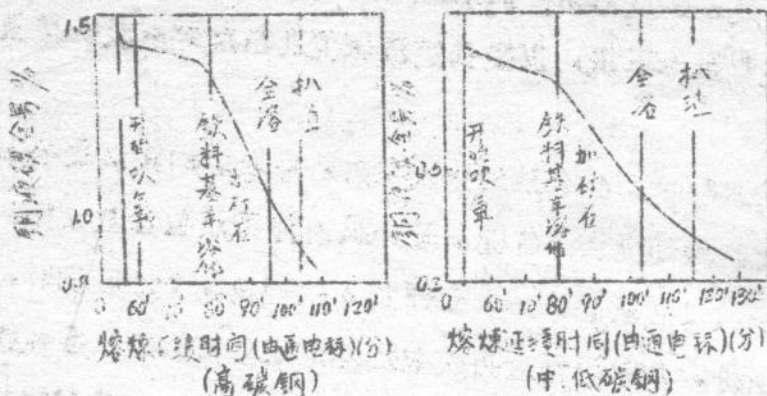 1.5
1.0
0.8
钢液碳含量 %
开始吹氧
炉料基本溶化
加矿石
全溶
扒渣
0 60' 70' 80' 90' 100' 110' 120'
熔炼延续时间(由通电标)(分)
(高碳钢)
0.5
0.2
钢液碳含量 %
开始吹氧
炉料基本溶化
加矿石
全溶
扒渣
0 60' 70' 80' 90' 100' 110' 120' 130'
熔炼延续时间(由通电标)(分)
(中.低碳钢)